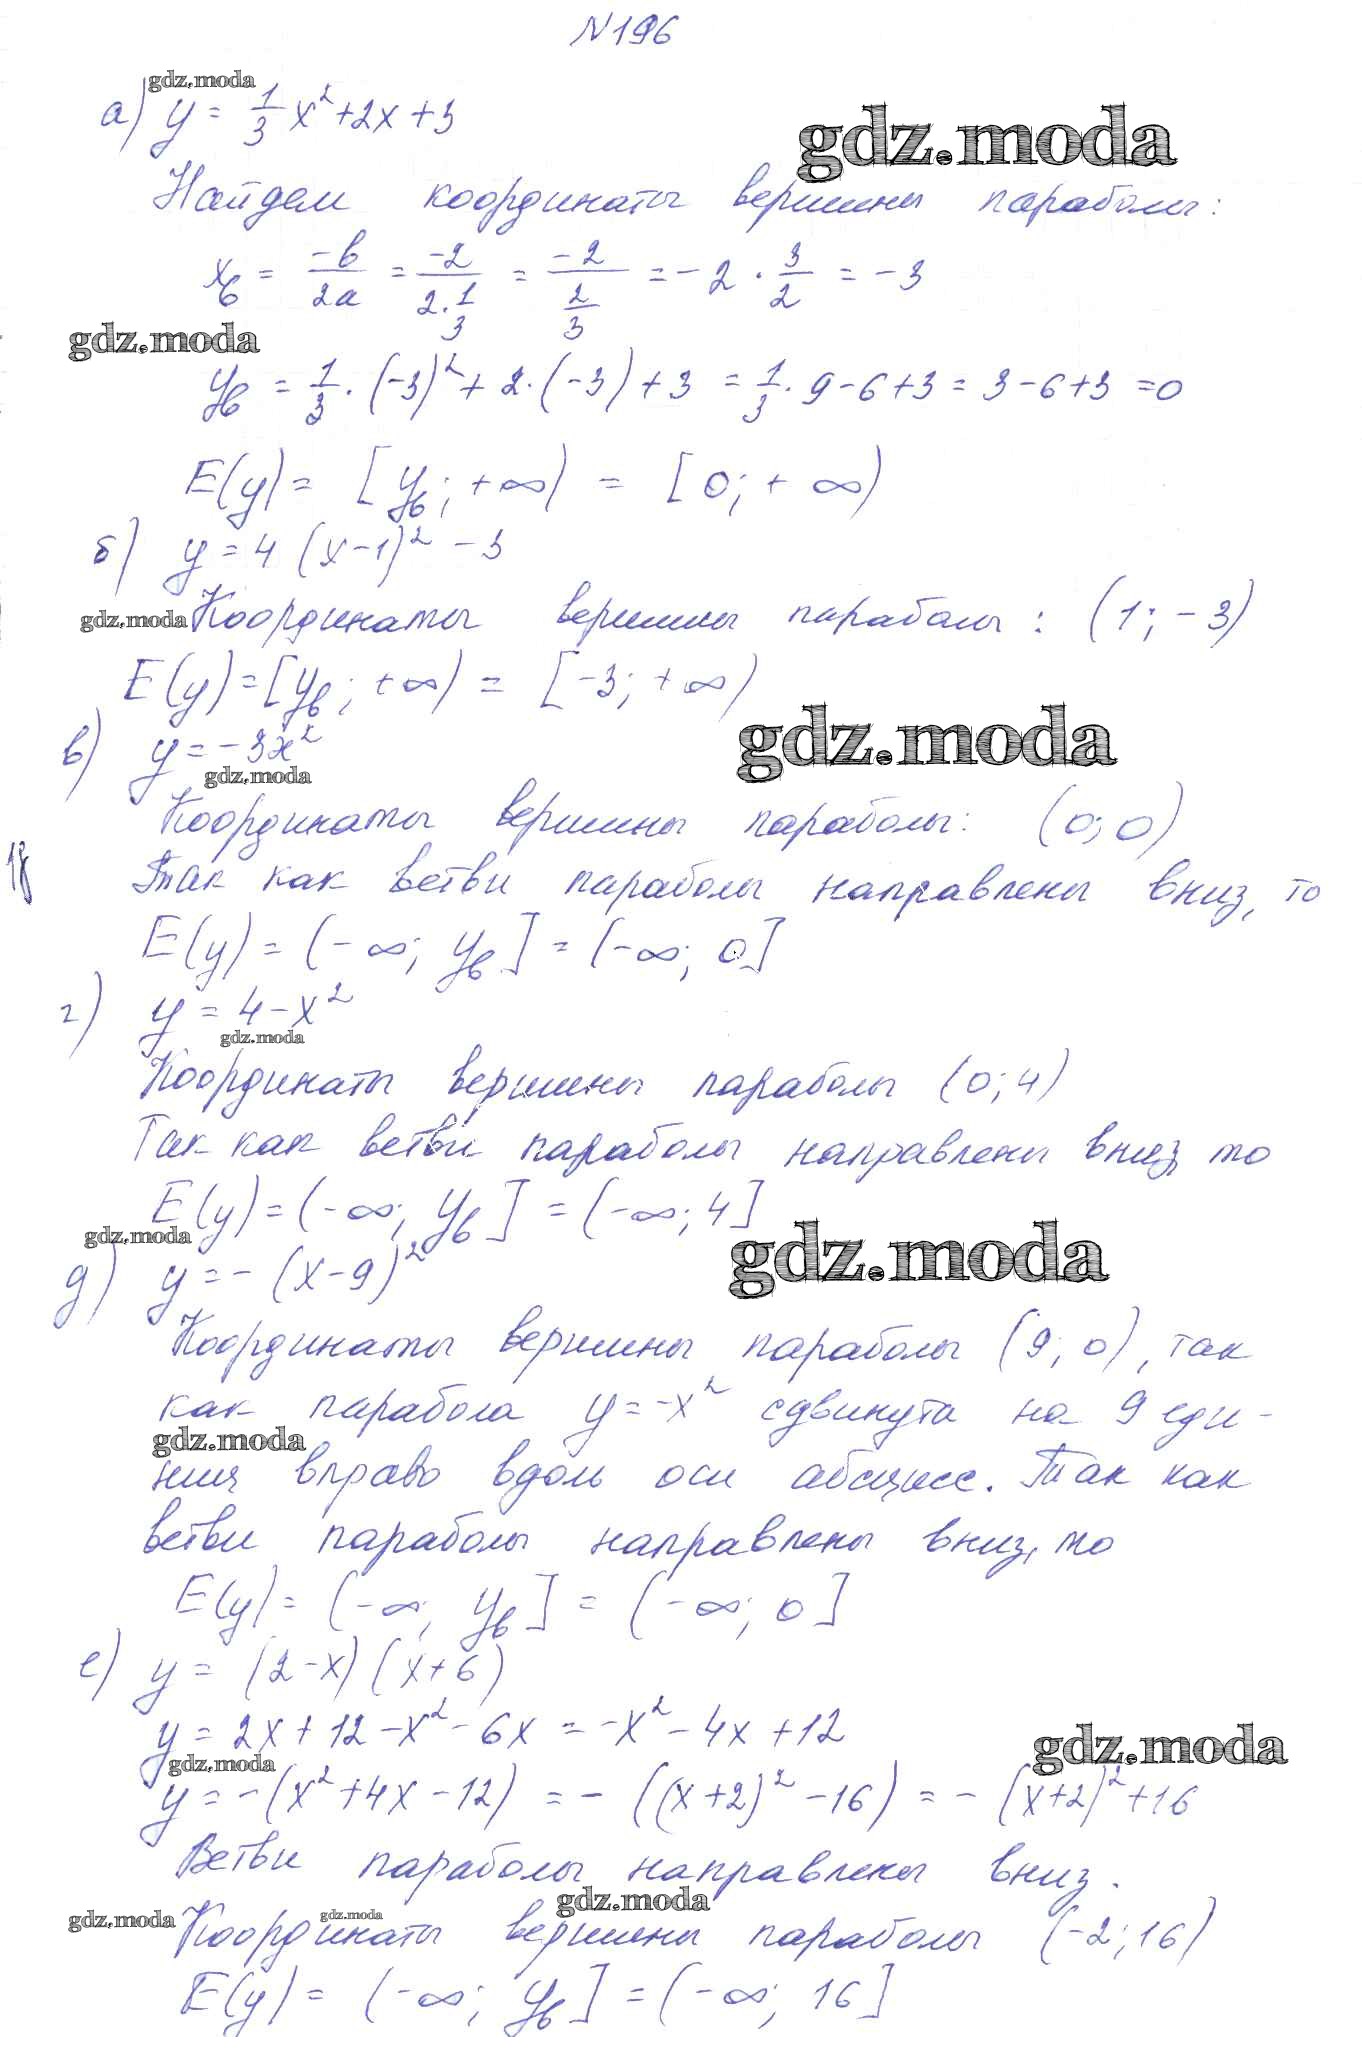 N196
gdz.moda
а) y = 1/3 x² + 2x + 3
gdz.moda
Найдем координаты вершины параболы:
x_в = -b/2a = -2/(2·1/3) = -2/(2/3) = -2 · 3/2 = -3
gdz.moda
y_в = 1/3 · (-3)² + 2·(-3) + 3 = 1/3 · 9 - 6 + 3 = 3 - 6 + 3 = 0
E(y) = [y_в; +∞) = [0; +∞)
б) y = 4(x-1)² - 3
gdz.moda Координаты вершины параболы: (1; -3)
E(y) = [y_в; +∞) = [-3; +∞)
gdz.moda
в) y = -3x²
gdz.moda
Координаты вершины параболы: (0; 0)
18
Так как ветви параболы направлены вниз, то
E(y) = (-∞; y_в] = (-∞; 0]
г) y = 4 - x²
gdz.moda
Координаты вершины параболы (0; 4)
Так как ветви параболы направлены вниз, то
E(y) = (-∞; y_в] = (-∞; 4]
gdz.moda
gdz.moda
д) y = -(x-9)²
Координаты вершины параболы (9; 0), так
как парабола y = -x² сдвинута на 9 еди-
gdz.moda
ниц вправо вдоль оси абсцисс. Так как
ветви параболы направлены вниз, то
E(y) = (-∞; y_в] = (-∞; 0]
е) y = (2-x)(x+6)
y = 2x + 12 - x² - 6x = -x² - 4x + 12
gdz.moda
gdz.moda
y = -(x² + 4x - 12) = -((x+2)² - 16) = -(x+2)² + 16
Ветви параболы направлены вниз.
gdz.moda
gdz.moda
gdz.moda
Координаты вершины параболы (-2; 16)
E(y) = (-∞; y_в] = (-∞; 16]